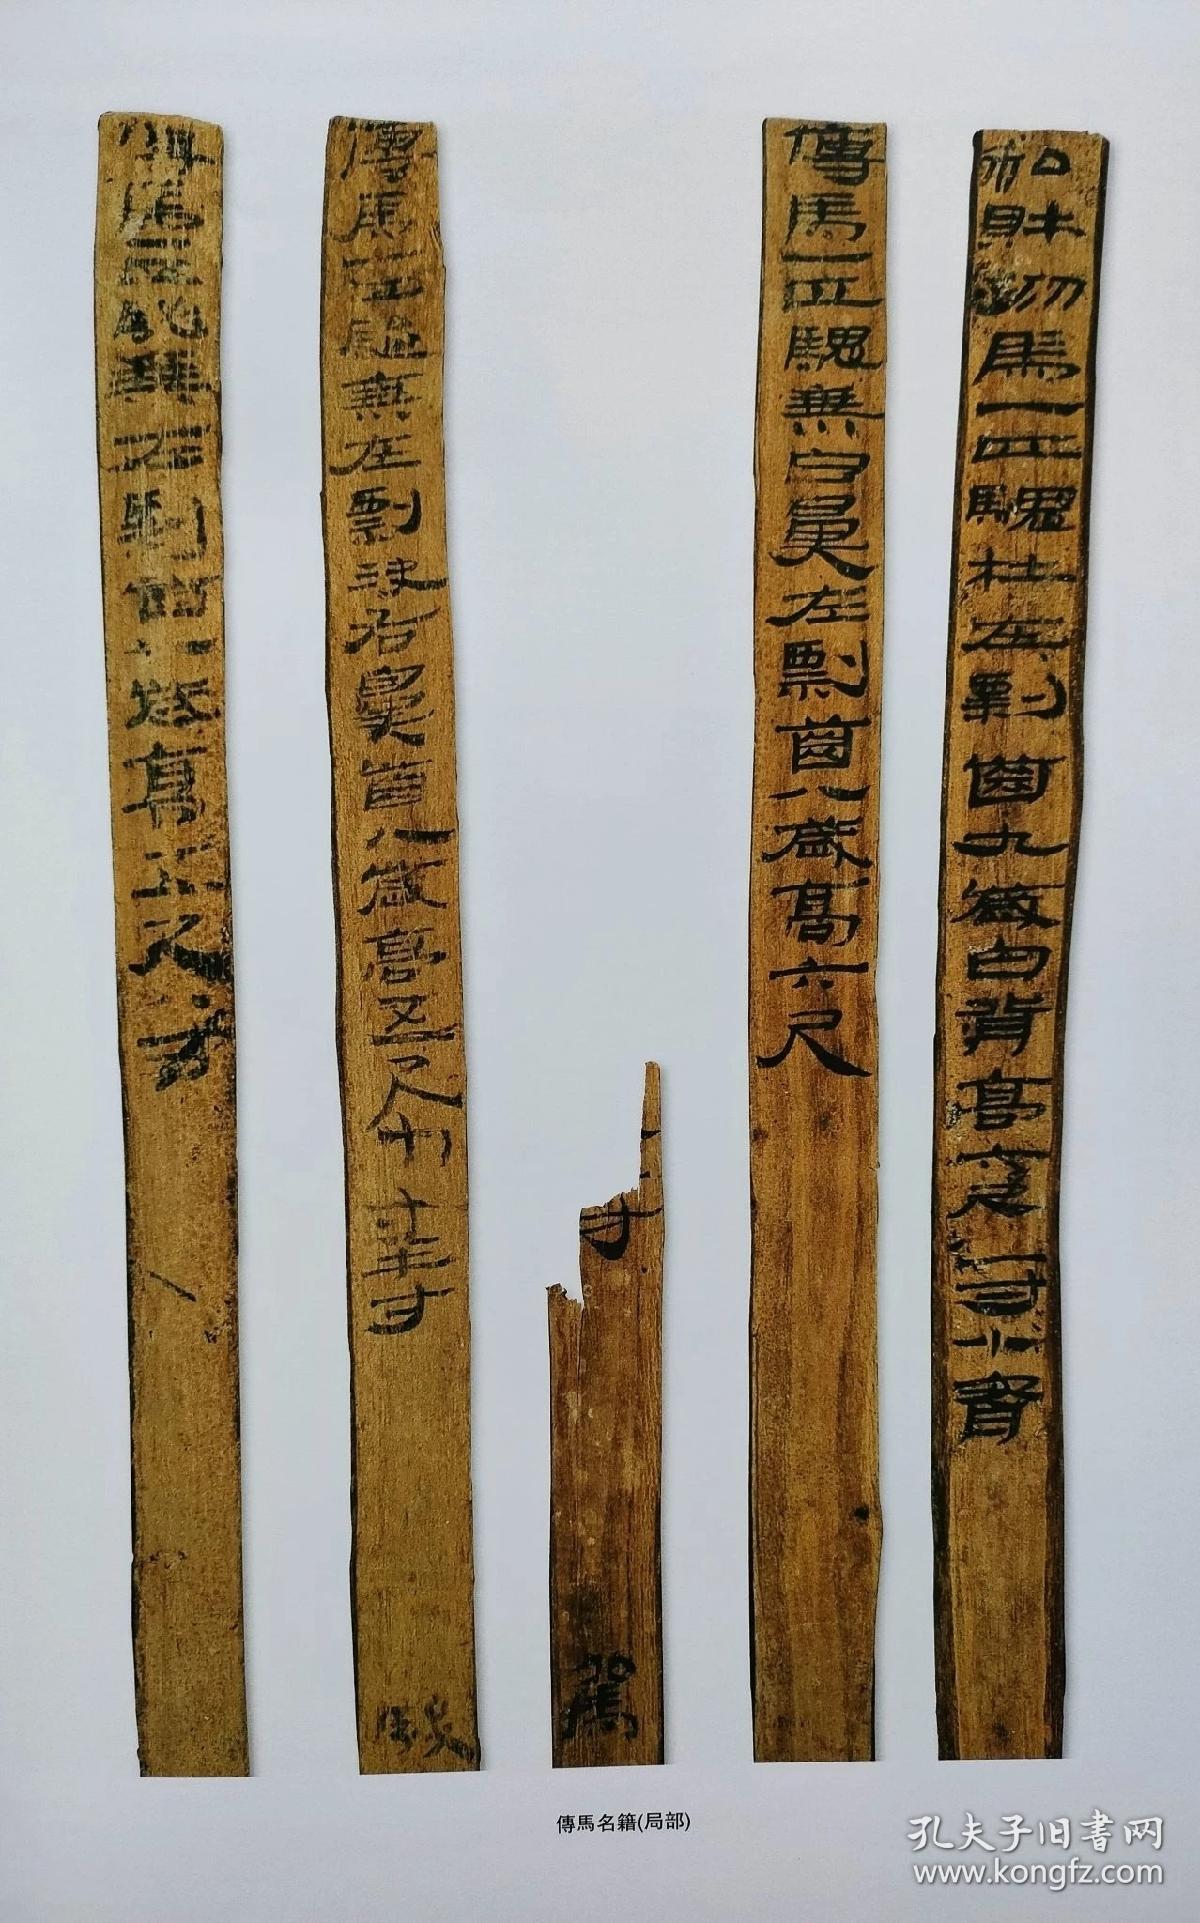 私財物馬一匹騩牡左剽齒九歲白背高六尺一寸小督
傳馬一匹騩乘白鼻左剽齒八歲高六尺
寸 駕
傳馬一匹駹乘左剽決右鼻齒八歲高五尺九寸半寸 驂
傳馬一匹乘右剽齒八歲高五尺寸
傳馬名籍(局部)
孔夫子旧書网
www.kongfz.com